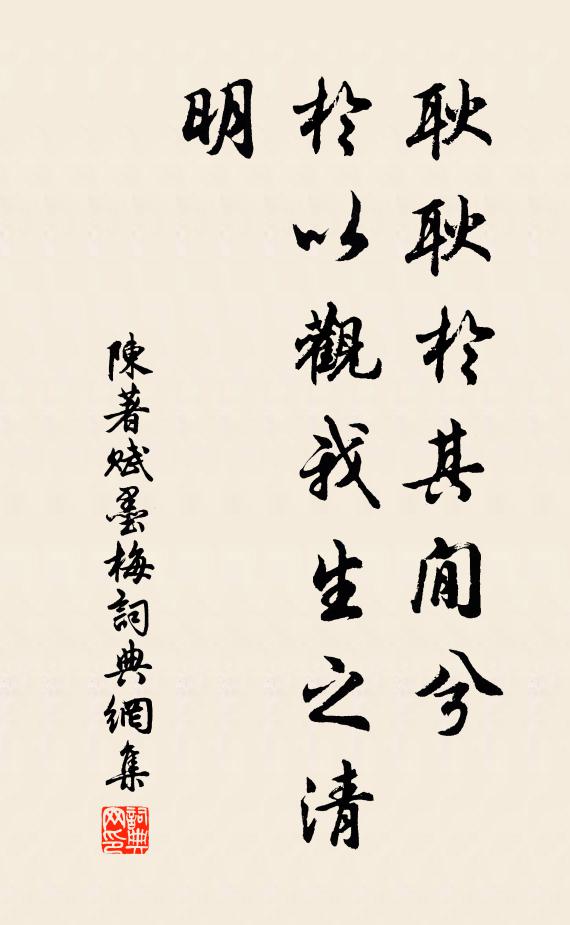 耿耿於其間兮
於以觀我生之清
明
陳著賦墨梅詞典網集
詞典網印